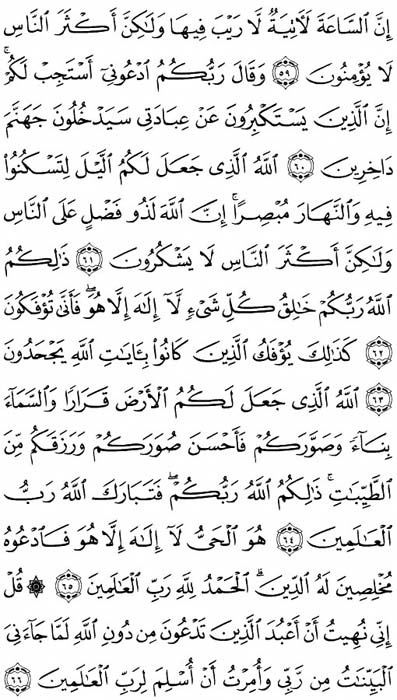 إِنَّ ٱلسَّاعَةَ لَءَاتِيَةٌ لَّا رَيْبَ فِيهَا وَلَٰكِنَّ أَكْثَرَ ٱلنَّاسِ
لَا يُؤْمِنُونَ ٥٩ وَقَالَ رَبُّكُمُ ٱدْعُونِىٓ أَسْتَجِبْ لَكُمْ ۚ
إِنَّ ٱلَّذِينَ يَسْتَكْبِرُونَ عَنْ عِبَادَتِى سَيَدْخُلُونَ جَهَنَّمَ
دَاخِرِينَ ٦٠ ٱللَّهُ ٱلَّذِى جَعَلَ لَكُمُ ٱلَّيْلَ لِتَسْكُنُوا۟
فِيهِ وَٱلنَّهَارَ مُبْصِرًا ۚ إِنَّ ٱللَّهَ لَذُو فَضْلٍ عَلَى ٱلنَّاسِ
وَلَٰكِنَّ أَكْثَرَ ٱلنَّاسِ لَا يَشْكُرُونَ ٦١ ذَٰلِكُمُ
ٱللَّهُ رَبُّكُمْ خَٰلِقُ كُلِّ شَىْءٍ لَّآ إِلَٰهَ إِلَّا هُوَ ۖ فَأَنَّىٰ تُؤْفَكُونَ
٦٢ كَذَٰلِكَ يُؤْفَكُ ٱلَّذِينَ كَانُوا۟ بِـَٔايَٰتِ ٱللَّهِ يَجْحَدُونَ
٦٣ ٱللَّهُ ٱلَّذِى جَعَلَ لَكُمُ ٱلْأَرْضَ قَرَارًا وَٱلسَّمَآءَ
بِنَآءً وَصَوَّرَكُمْ فَأَحْسَنَ صُوَرَكُمْ وَرَزَقَكُم مِّنَ
ٱلطَّيِّبَٰتِ ۚ ذَٰلِكُمُ ٱللَّهُ رَبُّكُمْ ۖ فَتَبَارَكَ ٱللَّهُ رَبُّ
ٱلْعَٰلَمِينَ ٦٤ هُوَ ٱلْحَىُّ لَآ إِلَٰهَ إِلَّا هُوَ فَٱدْعُوهُ
مُخْلِصِينَ لَهُ ٱلدِّينَ ۗ ٱلْحَمْدُ لِلَّهِ رَبِّ ٱلْعَٰلَمِينَ ٦٥ ۞ قُلْ
إِنِّى نُهِيتُ أَنْ أَعْبُدَ ٱلَّذِينَ تَدْعُونَ مِن دُونِ ٱللَّهِ لَمَّا جَآءَنِىَ
ٱلْبَيِّنَٰتُ مِن رَّبِّى وَأُمِرْتُ أَنْ أُسْلِمَ لِرَبِّ ٱلْعَٰلَمِينَ ٦٦